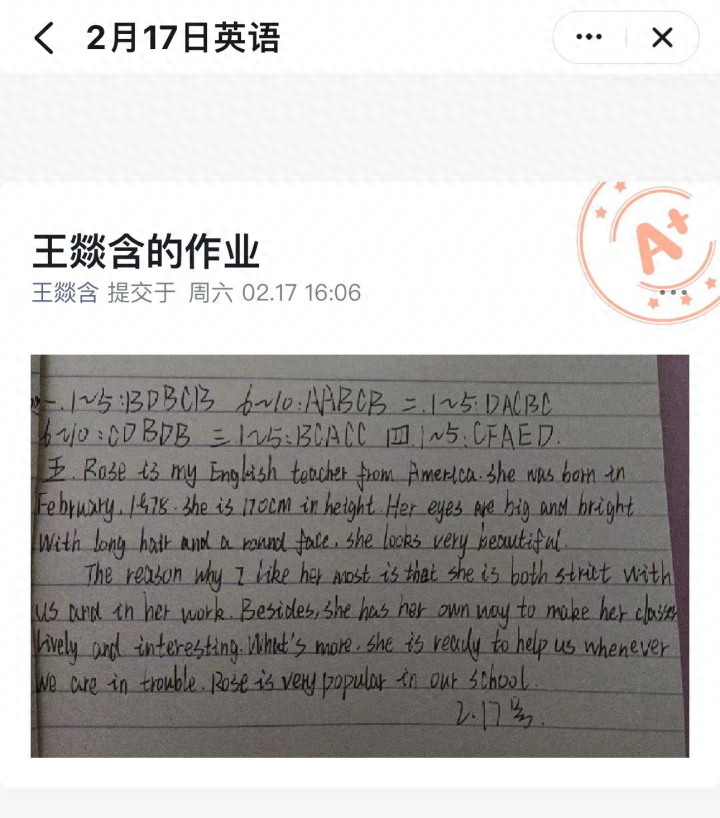 2月17日英语
A+
王燚含的作业
王燚含 提交于 周六 02.17 16:06
一.1~5:BDBCB 6~10:AABCB 二.1~5:DACBC
6~10:CDBDB 三1~5:BCACC 四1~5:CFAED.
五. Rose is my English teacher from America. she was born in
February, 1978. she is 170cm in height Her eyes are big and bright
With long hair and a round face, she looks very beautiful.
The reason why I like her most is that she is both strict with
us and in her work. Besides, she has her own way to make her classes
lively and interesting. What's more, she is ready to help us whenever
we are in trouble. Rose is very popular in our school.
2.17